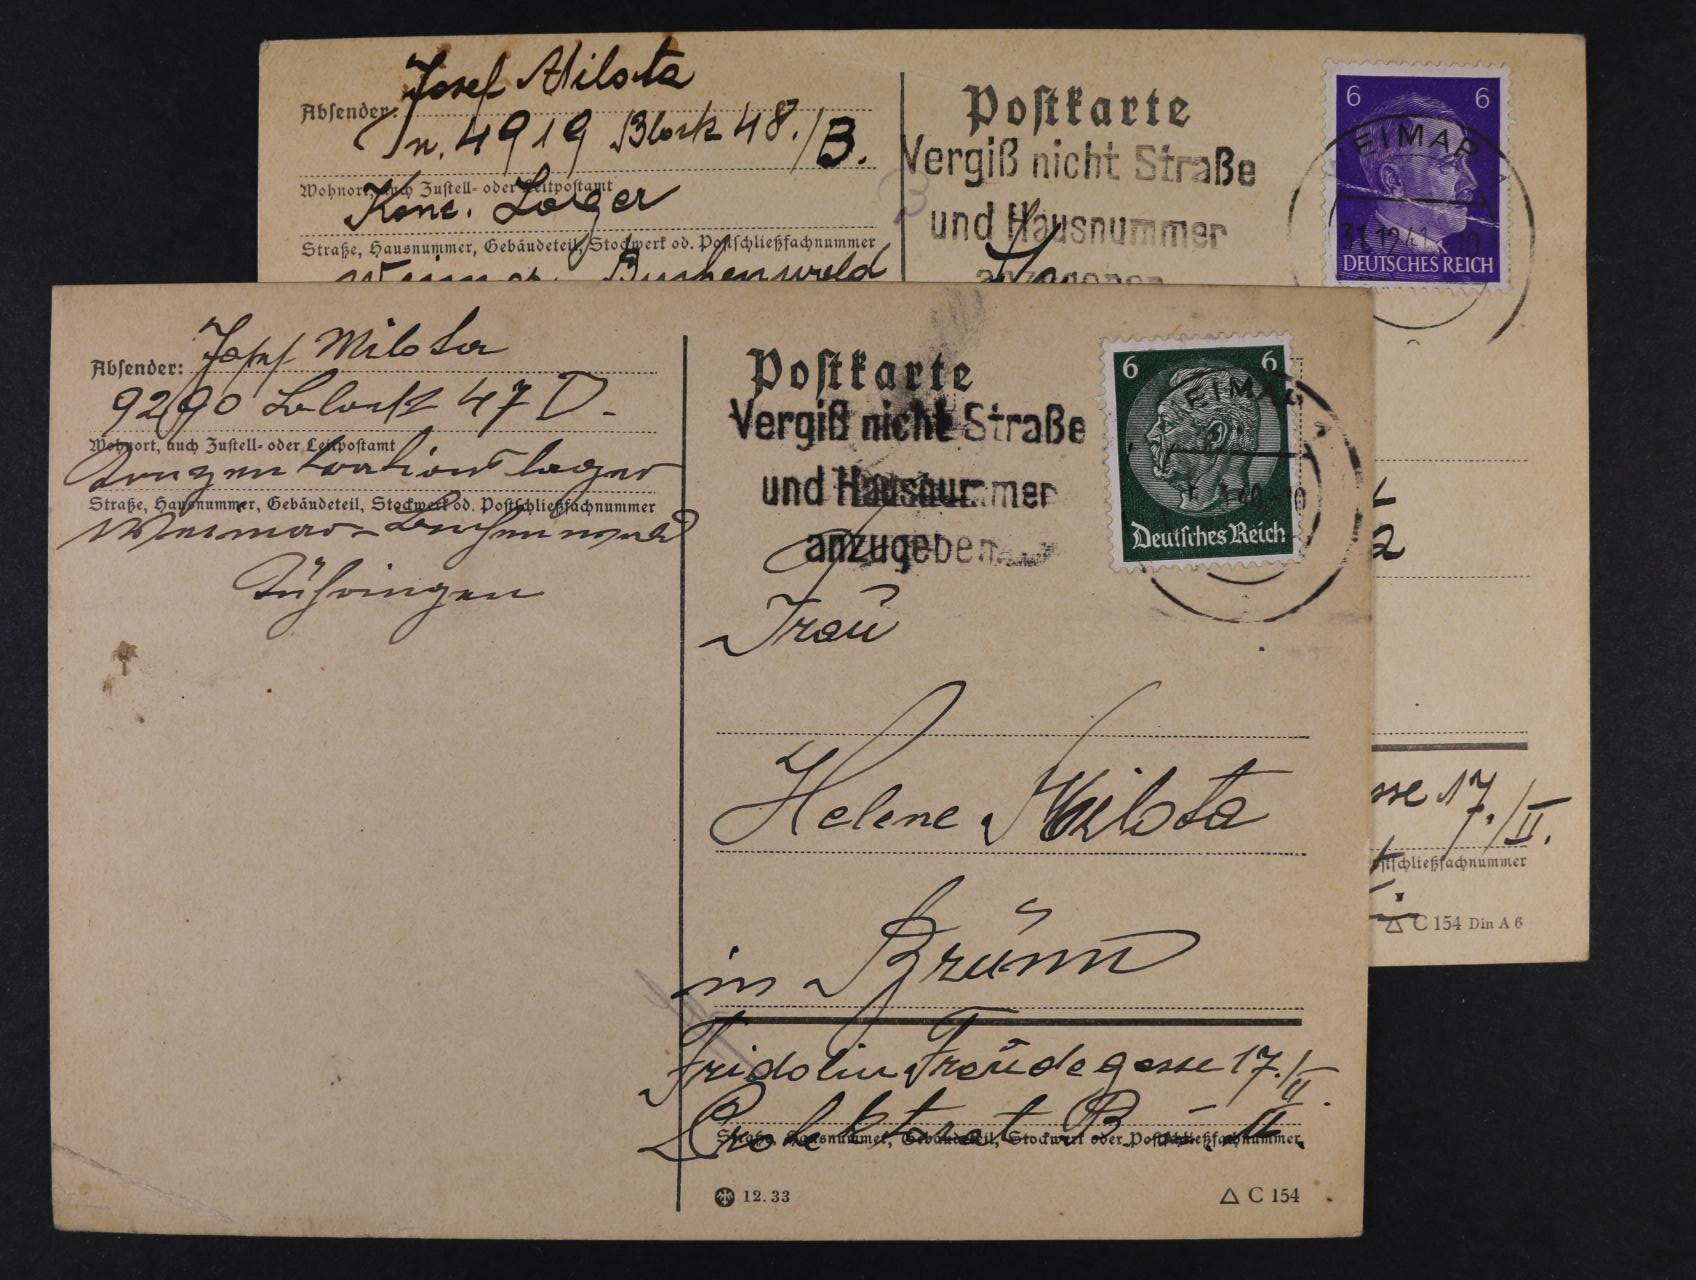 Absender: Josef Milota
n. 4919 Block 48./B.
Wohnort, auch Zustell- oder Leitpostamt
Konc. Lager
Straße, Hausnummer, Gebäudeteil, Stockwerk od. Postschließfachnummer
Weimar Buchenwald
Postkarte
Vergiß nicht Straße
und Hausnummer
anzugeben
6 6
EIMAR
31.12.41. 10
DEUTSCHES REICH
sse 17./II.
ostschließfachnummer
△ C 154 Din A 6
Absender: Josef Milota
9290 Block 47 D.
Wohnort, auch Zustell- oder Leitpostamt
Konzentrationslager
Straße, Hausnummer, Gebäudeteil, Stockwerk od. Postschließfachnummer
Weimar-Buchenwald
Thüringen
Postkarte
Vergiß nicht Straße
und Hausnummer
anzugeben
6 6
EIMAR
Deutsches Reich
Frau
Helene Milota
in Brünn
Fridolin Freudegasse 17./II.
Straße, Hausnummer, Gebäudeteil, Stockwerk oder Postschließfachnummer
12.33
△ C 154